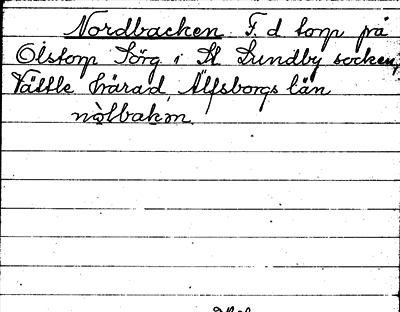 Nordbacken F. d torp på
Olstorp Sörg i St Lundby socken,
Vättle härad, Älfsborgs län